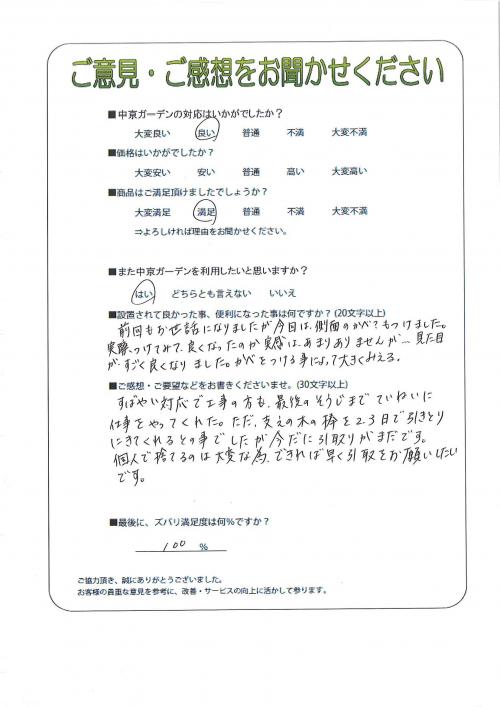 ご意見・ご感想をお聞かせください
■中京ガーデンの対応はいかがでしたか？
大変良い 良い 普通 不満 大変不満
■価格はいかがでしたか？
大変安い 安い 普通 高い 大変高い
■商品はご満足頂けましたでしょうか？
大変満足 満足 普通 不満 大変不満
⇒よろしければ理由をお聞かせください。
■また中京ガーデンを利用したいと思いますか？
はい どちらとも言えない いいえ
■設置されて良かった事、便利になった事は何ですか？(20文字以上)
前回もお世話になりましたが今日は、側面のかべ？もつけました。
実際、つけてみて、良くなったのか実感は、あまりありませんが…見た目
が、すごく良くなりました。かべをつける事によって大きくみえる。
■ご感想・ご要望などをお書きくださいませ。(30文字以上)
すばやい対応で工事の方も、最後のそうじまでていねいに
仕事をやってくれた。ただ、支えの木の棒を2.3日で引きとり
にきてくれるとの事でしたが今だに引取りがまだです。
個人で捨てるのは大変な為、できれば早く引取をお願いしたい
です。
■最後に、ズバリ満足度は何％ですか？
100 ％
ご協力頂き、誠にありがとうございました。
お客様の貴重な意見を参考に、改善・サービスの向上に活かして参ります。